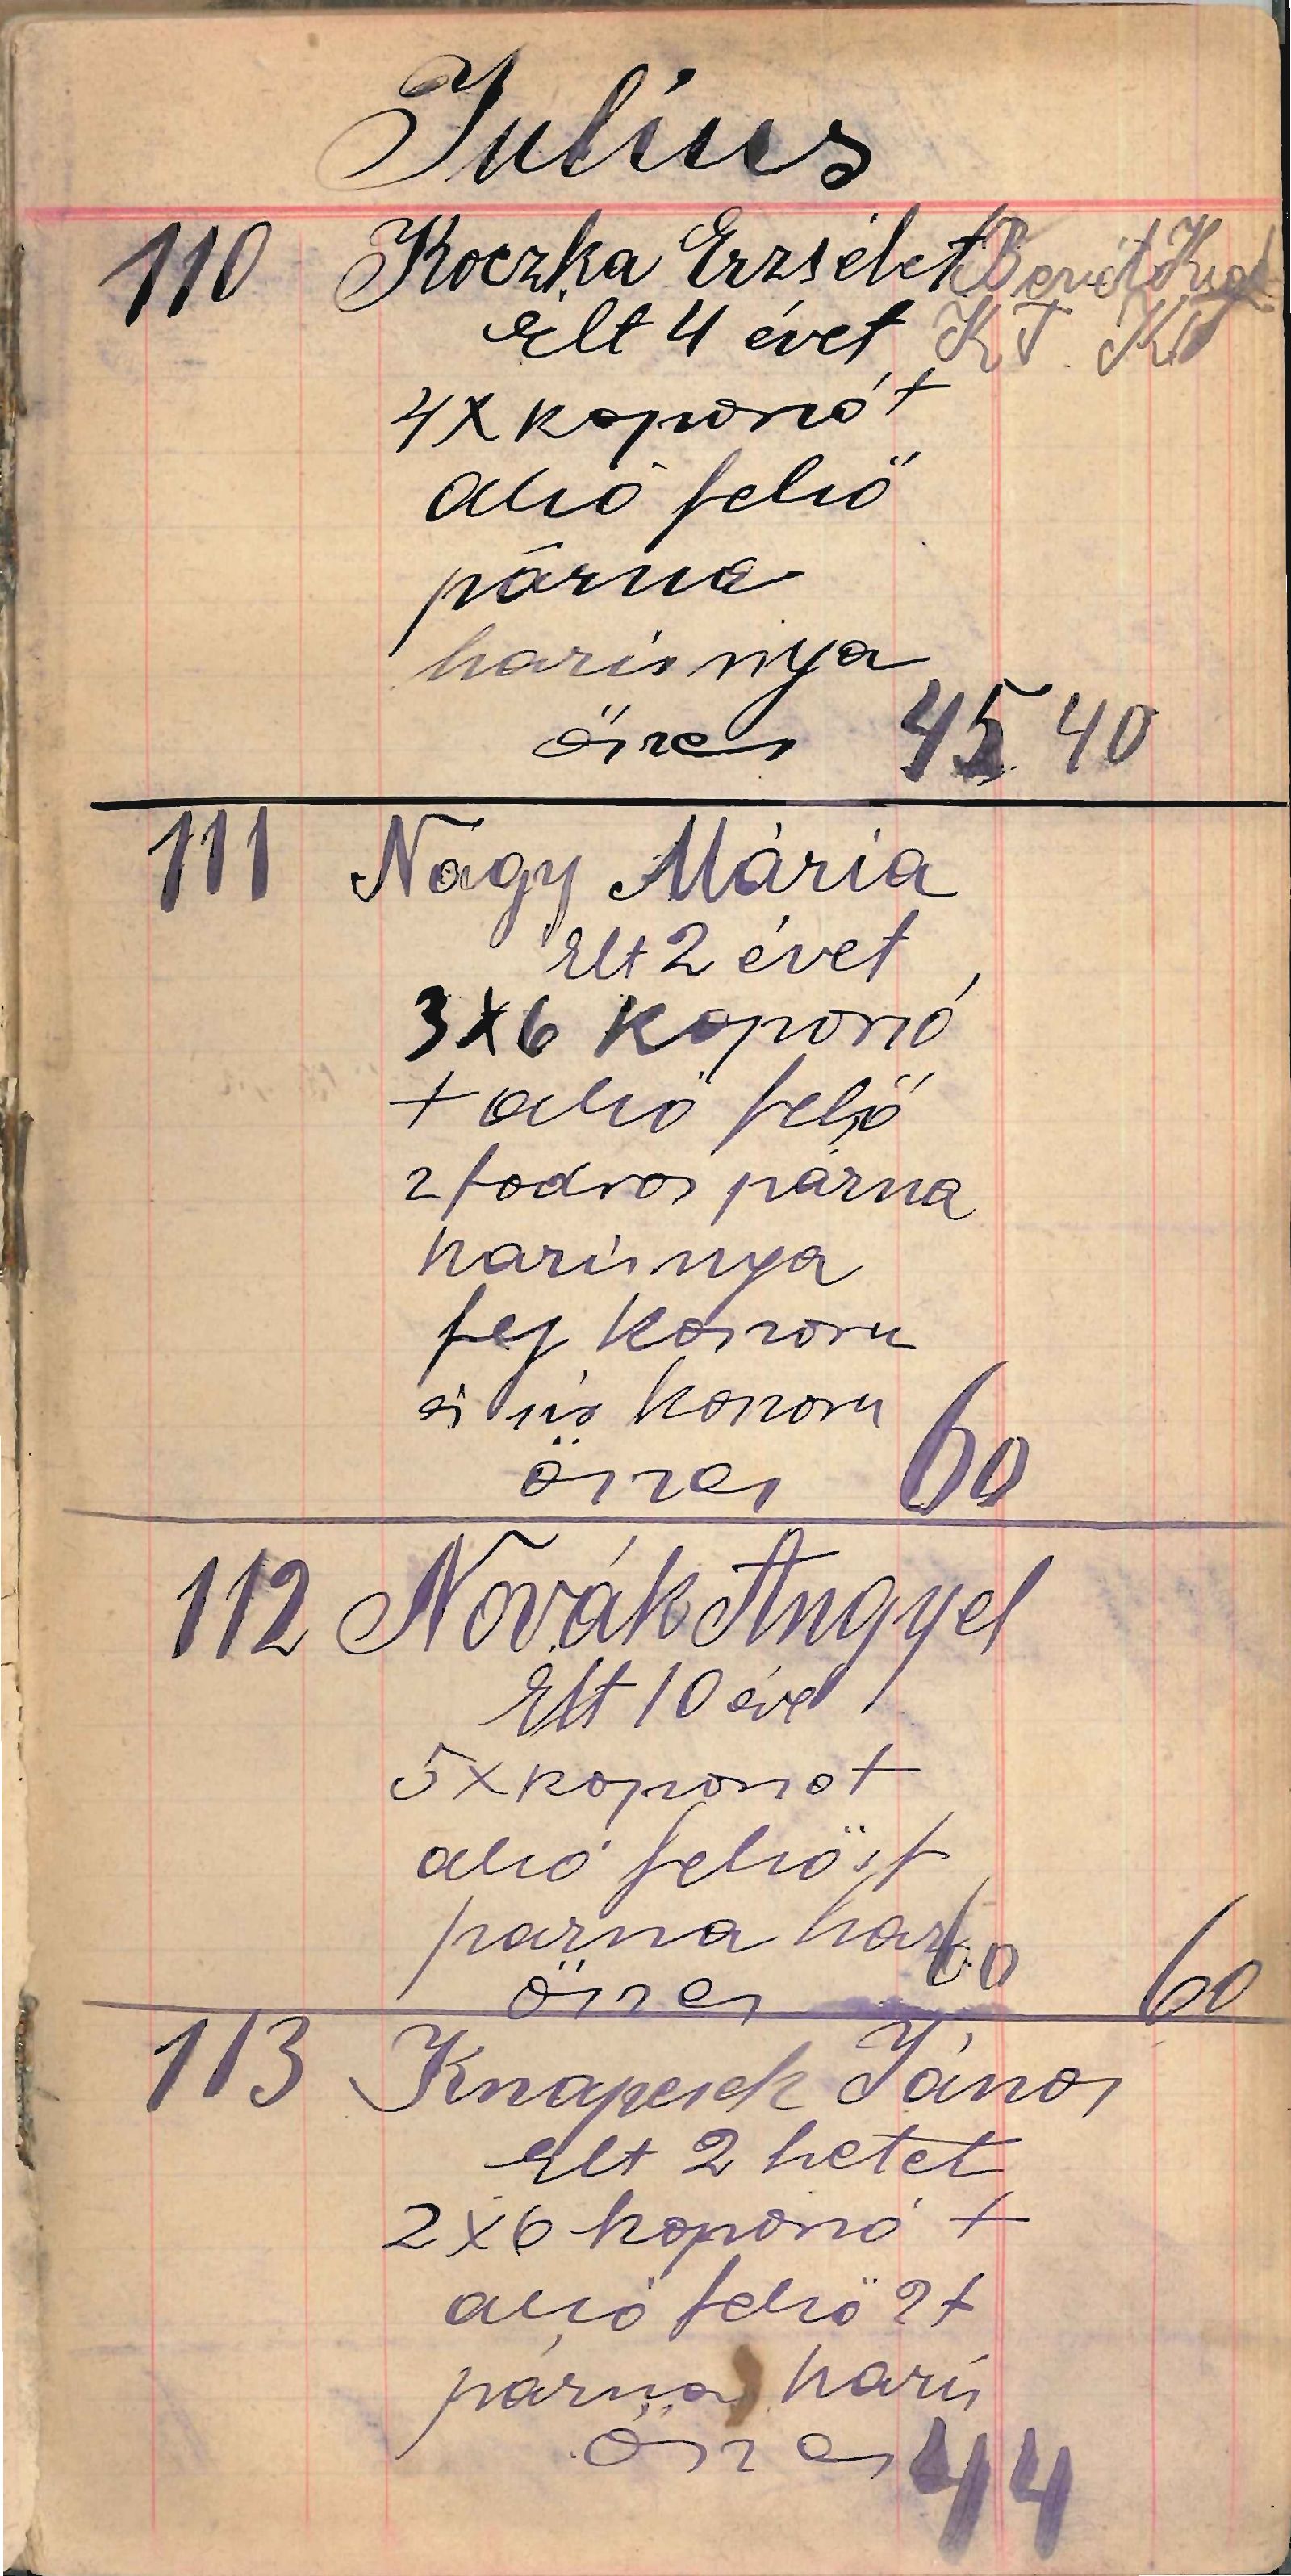 Július
110 Koczka Erzsébet
Élt 4 évet K T. KT
4X koporsó +
alsó felső
párna
harisnya
öszes 45 40
111 Nagy Mária
Élt 2 évet
3X6 koporsó
+ alsó felső
2 fodros párna
harisnya
fej koszoru
koszoru
öszes 60
112 Novák Angyel
Élt 10 éve
5X koporsot
alsó felsö
parna har 60
öszes 60
113 Knapcsek János
Élt 2 hetet
2X6 koporsó +
alsó felsö 2 f
párna haris
öszes 44